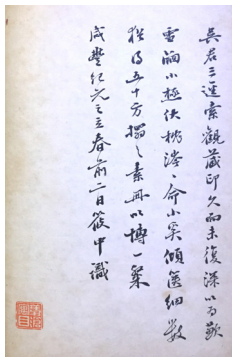 吳君三運索觀藏印久而未復深以為歉
雪涵小極伏枕滓〻命小奚傾篋細數
猶得五十方搨之素冊以博一粲
咸豐紀元之立春前二日筱中識